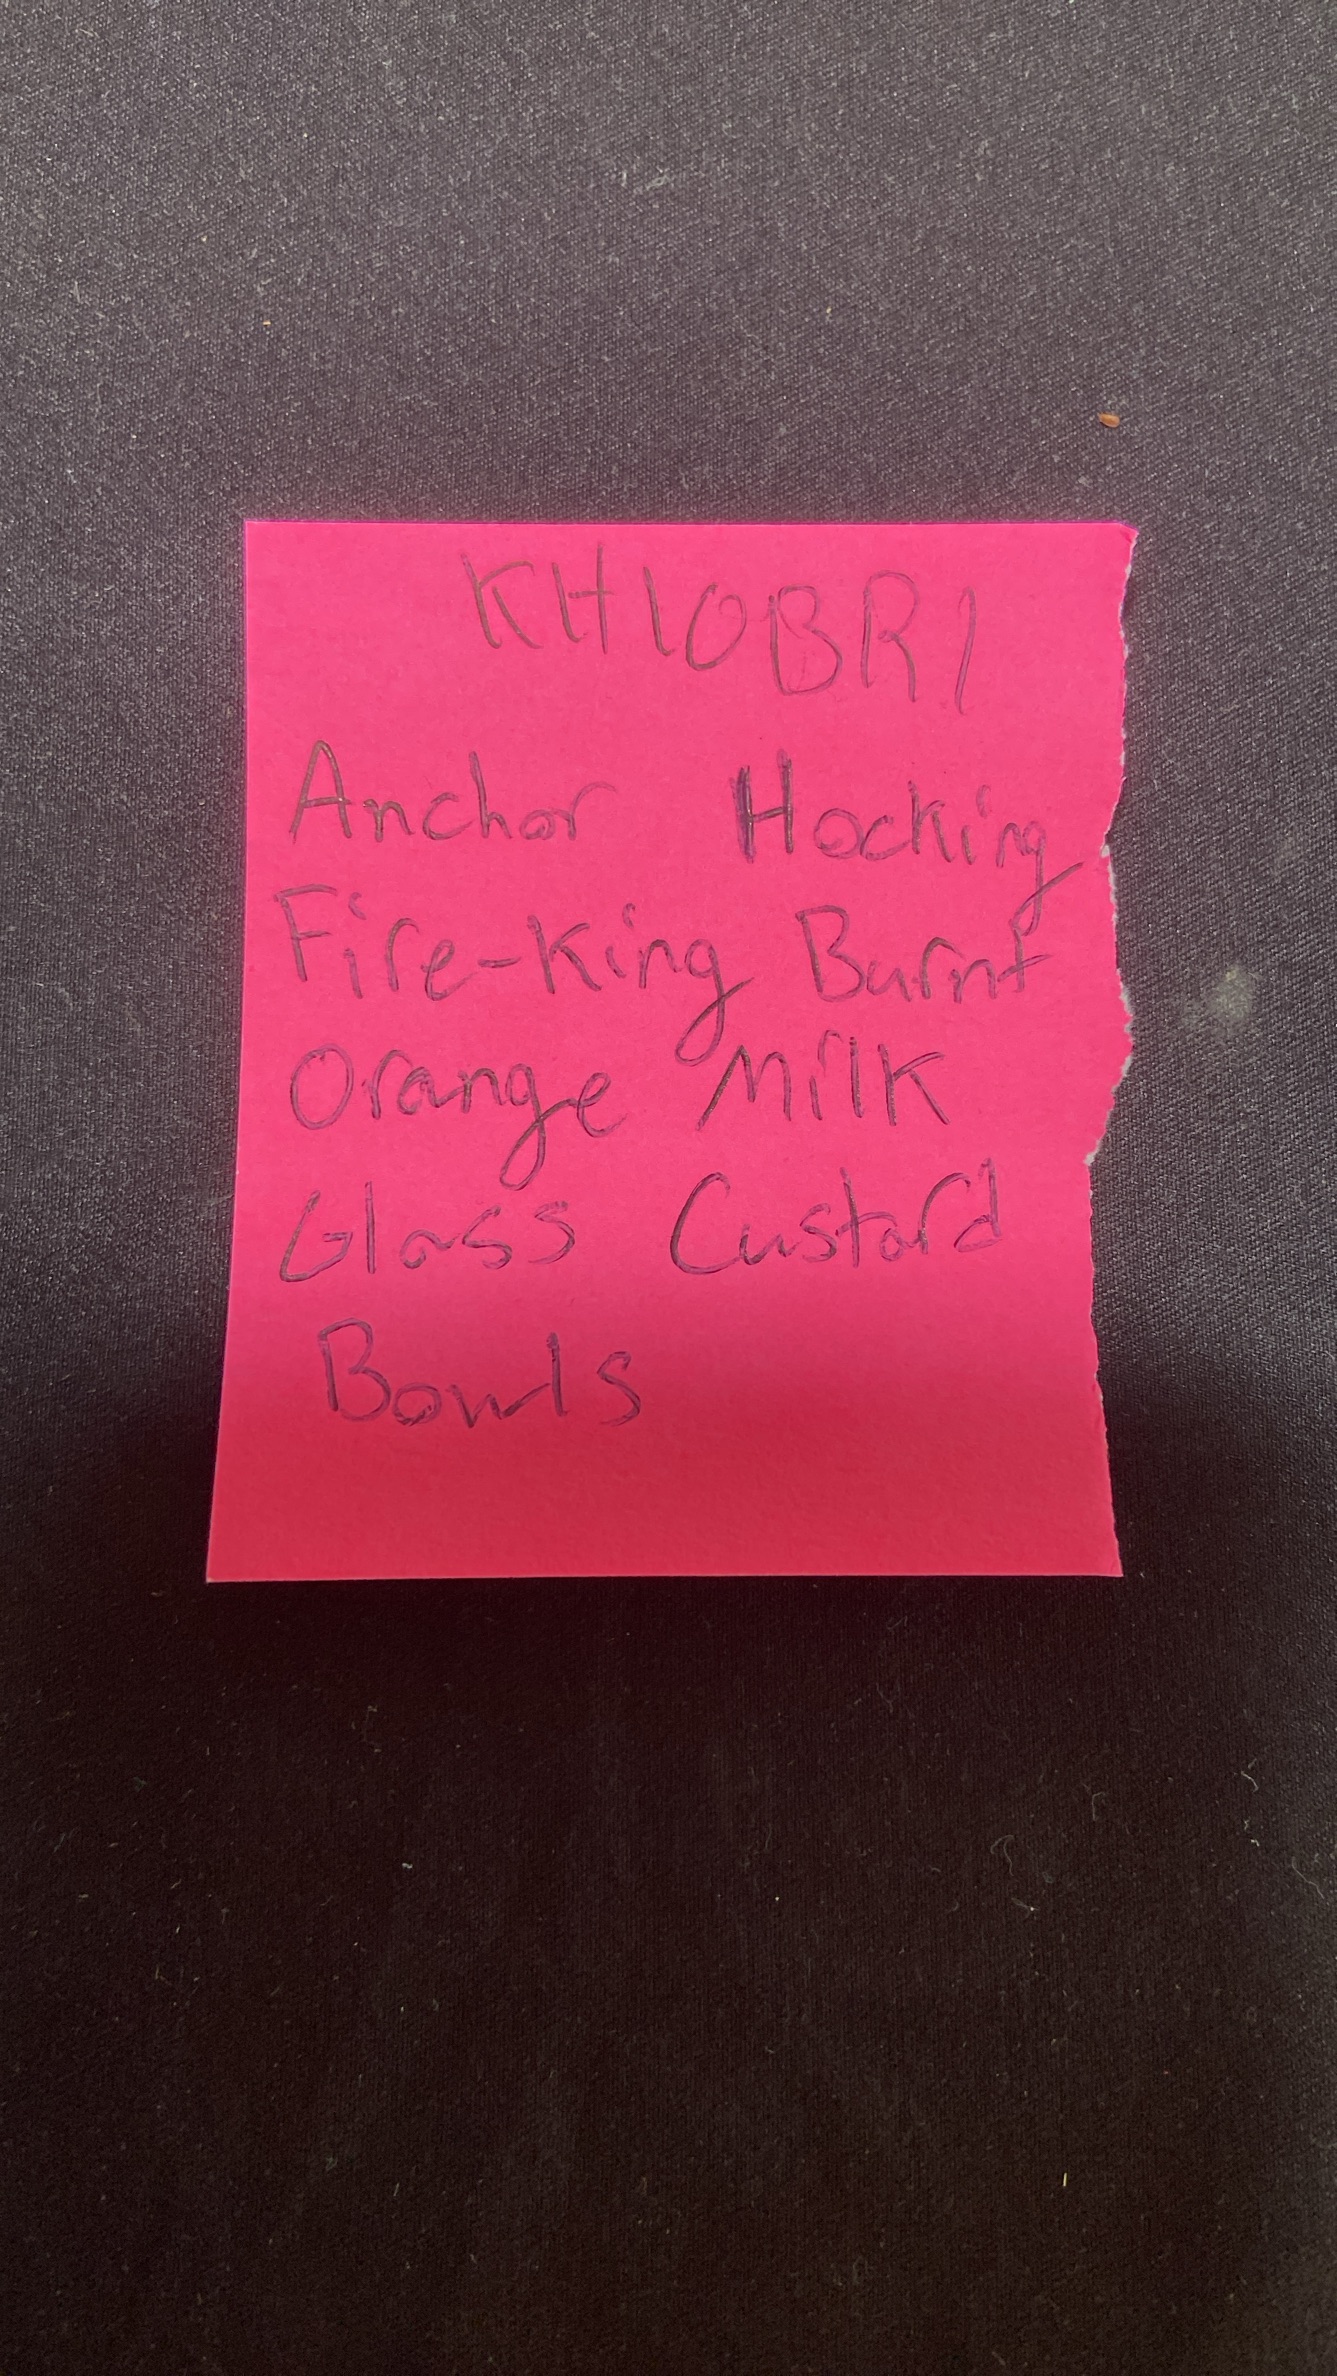 KH10BR1
Anchor Hocking
Fire-King Burnt
Orange Milk
Glass Custard
Bowls